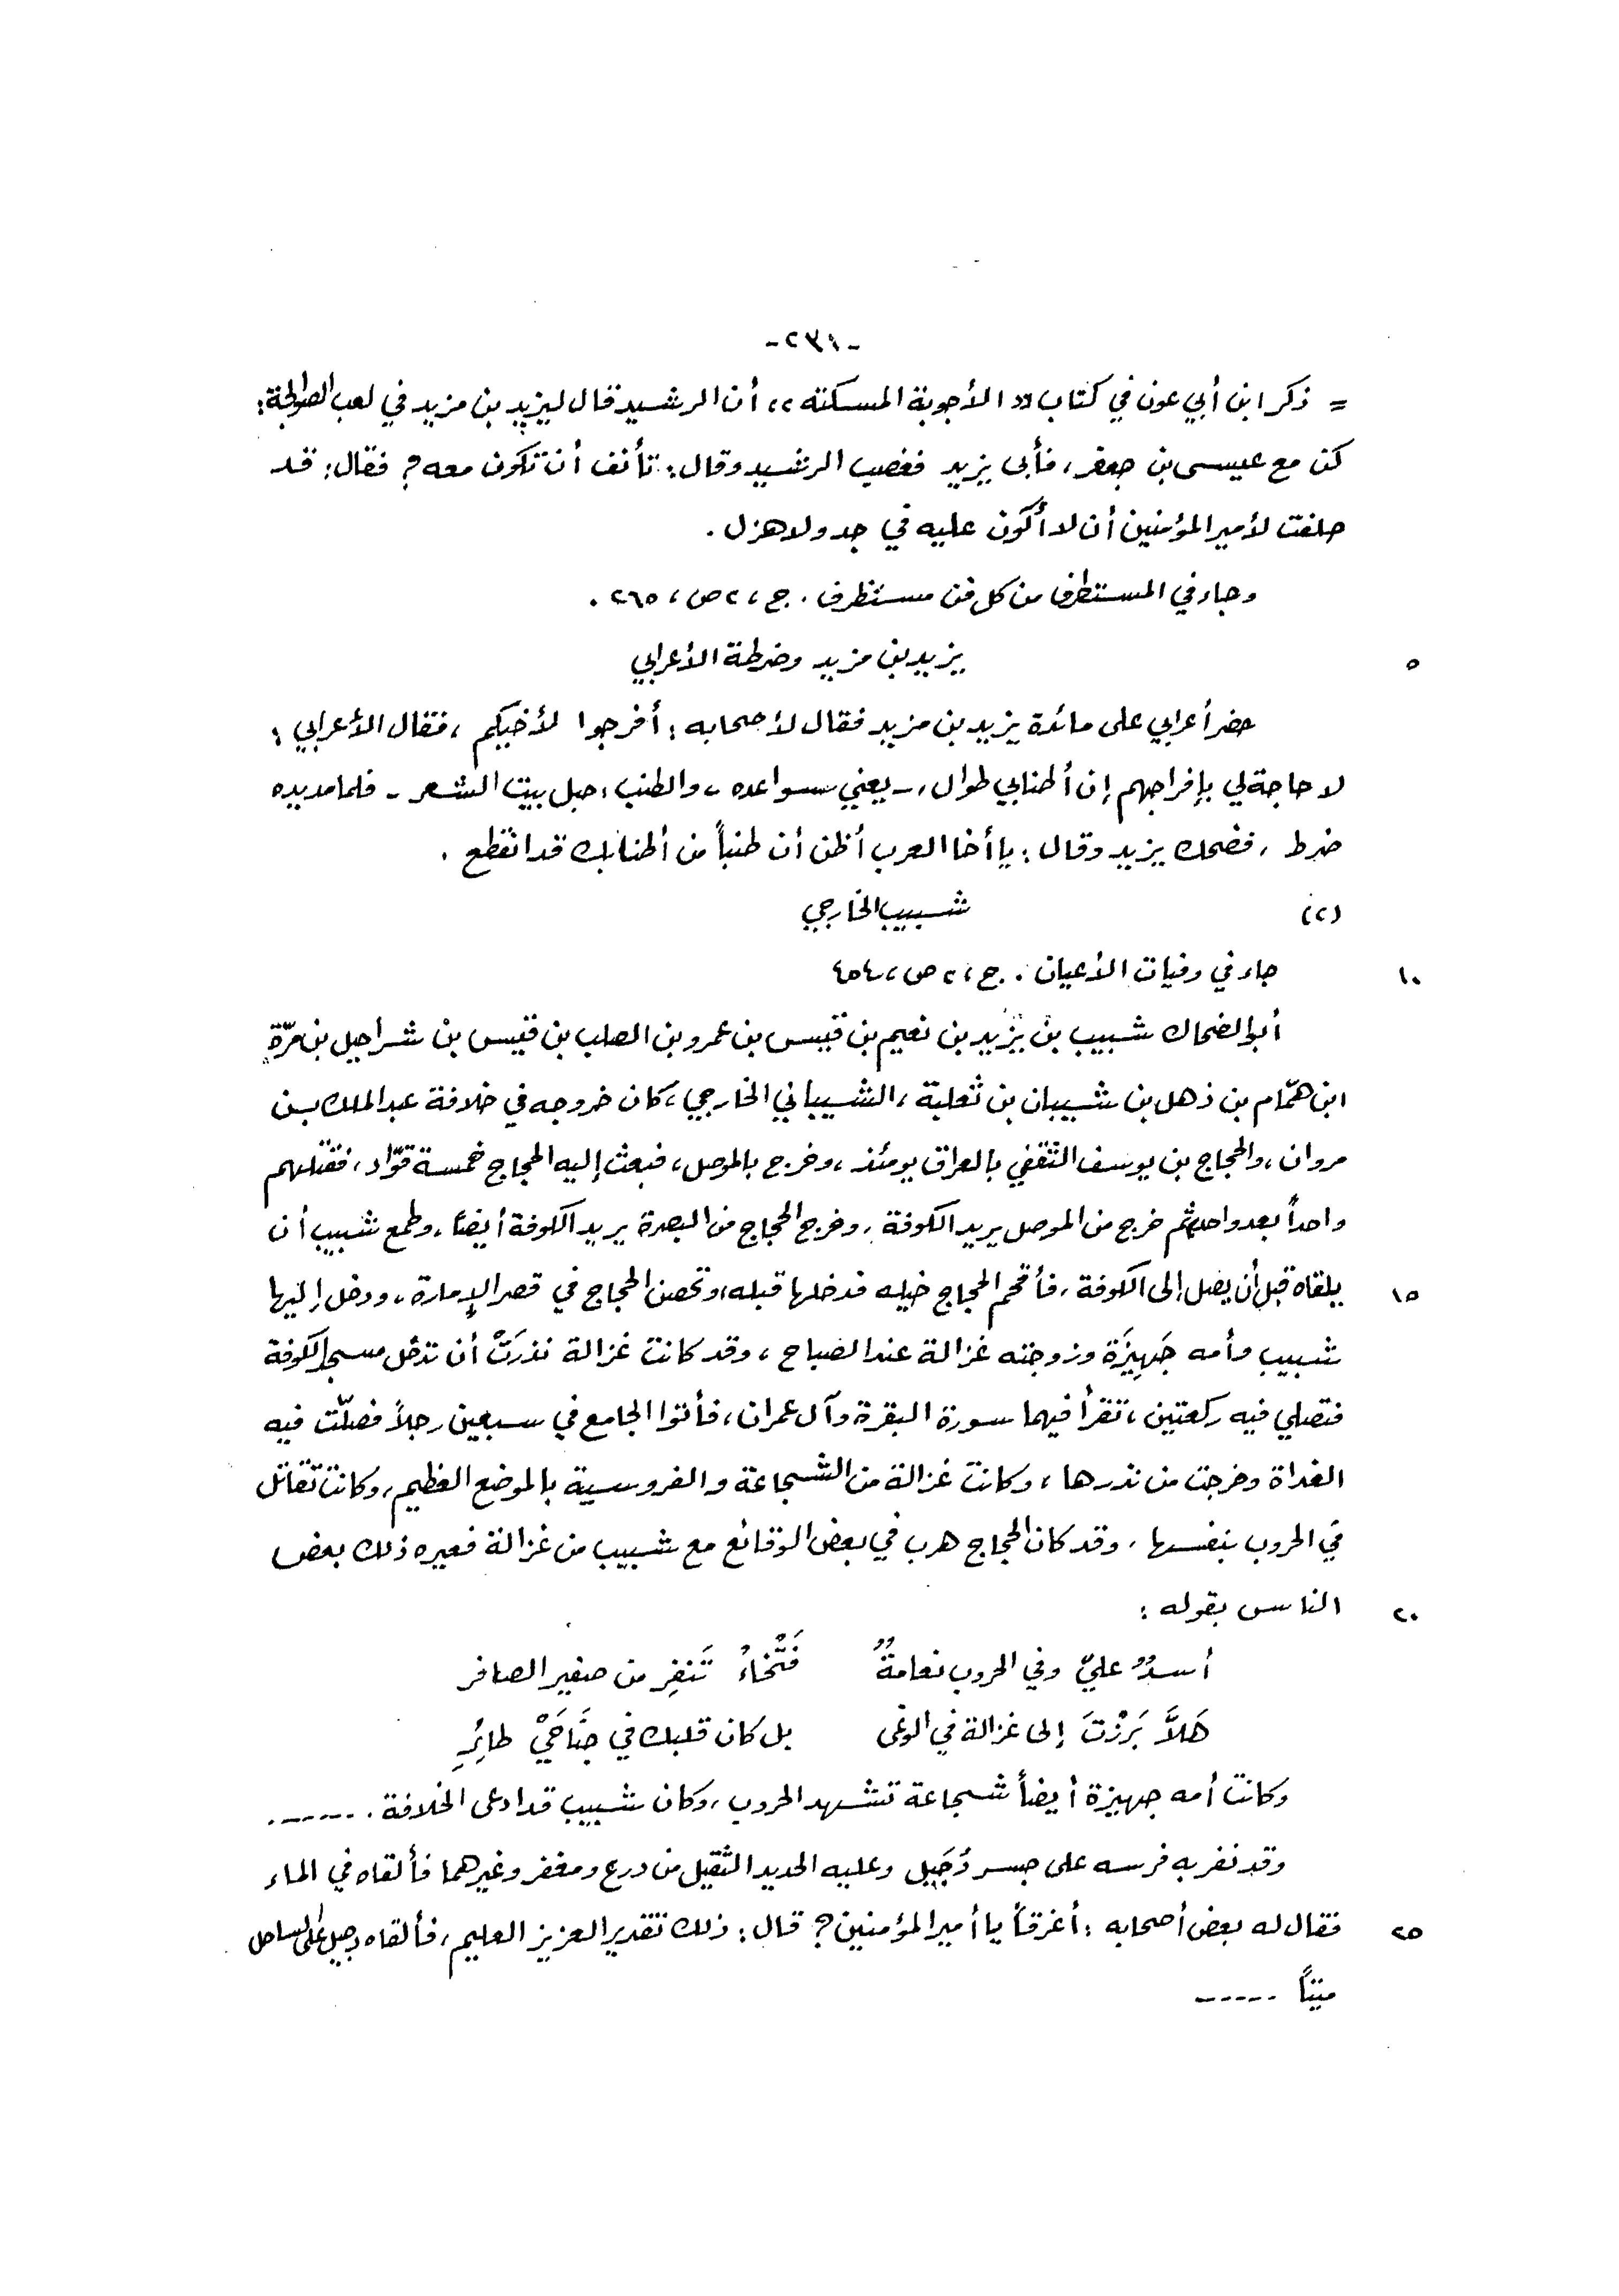 -٢٣١-
= ذكر ابن أبي عون في كتاب «الأجوبة المسكتة» أن الرشيد قال ليزيد بن مزيد في لعب الصوالجة:
كن مع عيسى بن جعفر، فأبى يزيد فغضب الرشيد وقال: تأنف أن تكون معه؟ فقال: قد
حلفت لأمير المؤمنين أن لا أكون عليه في جد ولا هزل.
وجاء في المستطرف من كل فن مستظرف. ج، ٢ ص، ٢٦٥.
٥ يزيد بن مزيد وضرطة الأعرابي
حضر أعرابي على مائدة يزيد بن مزيد فقال لأصحابه: أفرجوا لأخيكم، فقال الأعرابي:
لا حاجة لي بإفراجهم إن أطنابي طوال، - يعني سواعده، والطنب، حبل بيت الشعر - فلما مد يده
ضرط، فضحك يزيد وقال: يا أخا العرب أظن أن طنباً من أطنابك قد انقطع.
(٢) شبيب الخارجي
١٠ جاء في وفيات الأعيان. ج، ٢ ص، ٤٥٤
أبو الضحاك شبيب بن يزيد بن نعيم بن قيس بن عمرو بن الصلب بن قيس بن شراحيل بن مرّة
ابن همّام بن ذهل بن شيبان بن ثعلبة، الشيباني الخارجي، كان خروجه في خلافة عبد الملك بن
مروان، والحجاج بن يوسف الثقفي بالعراق يومئذ، وخرج بالموصل، فبعث إليه الحجاج خمسة قوّاد، فقتلهم
واحداً بعد واحد، ثم خرج من الموصل يريد الكوفة، وخرج الحجاج من البصرة يريد الكوفة أيضاً، وطمع شبيب أن
١٥ يلقاه قبل أن يصل إلى الكوفة، فأقحم الحجاج خيله فدخلها قبله، وتحصن الحجاج في قصر الإمارة، ودخل إليها
شبيب وأمه جَهِيزَة وزوجته غزالة عند الصباح، وقد كانت غزالة نذرَتْ أن تدخل مسجد الكوفة
فتصلي فيه ركعتين، تقرأ فيهما سورة البقرة وآل عمران، فأتوا الجامع في سبعين رجلاً فصلّت فيه
الغداة وخرجت من نذرها، وكانت غزالة من الشجاعة والفروسية بالموضع العظيم، وكانت تقاتل
في الحروب بنفسها، وقد كان الحجاج هرب في بعض الوقائع مع شبيب من غزالة فعيره ذلك بعض
٢٠ الناس بقوله:
أسدٌ عليّ وفي الحروب نعامةٌ فَتْخاءُ تَنفِر من صفير الصافر
هَلاَّ بَرَزْتَ إلى غزالة في الوغى بل كان قلبك في جَنَاحَيْ طائِرِ
وكانت أمه جهيزة أيضاً شجاعة تشهد الحروب، وكان شبيب قد ادعى الخلافة. ------.
وقد نفر به فرسه على جسر دُجَيل وعليه الحديد الثقيل من درع ومغفر وغيرهما فألقاه في الماء
٢٥ فقال له بعض أصحابه: أغرقاً يا أمير المؤمنين؟ قال: ذلك تقدير العزيز العليم، فألقاه دجيل على الساحل
ميتاً -----